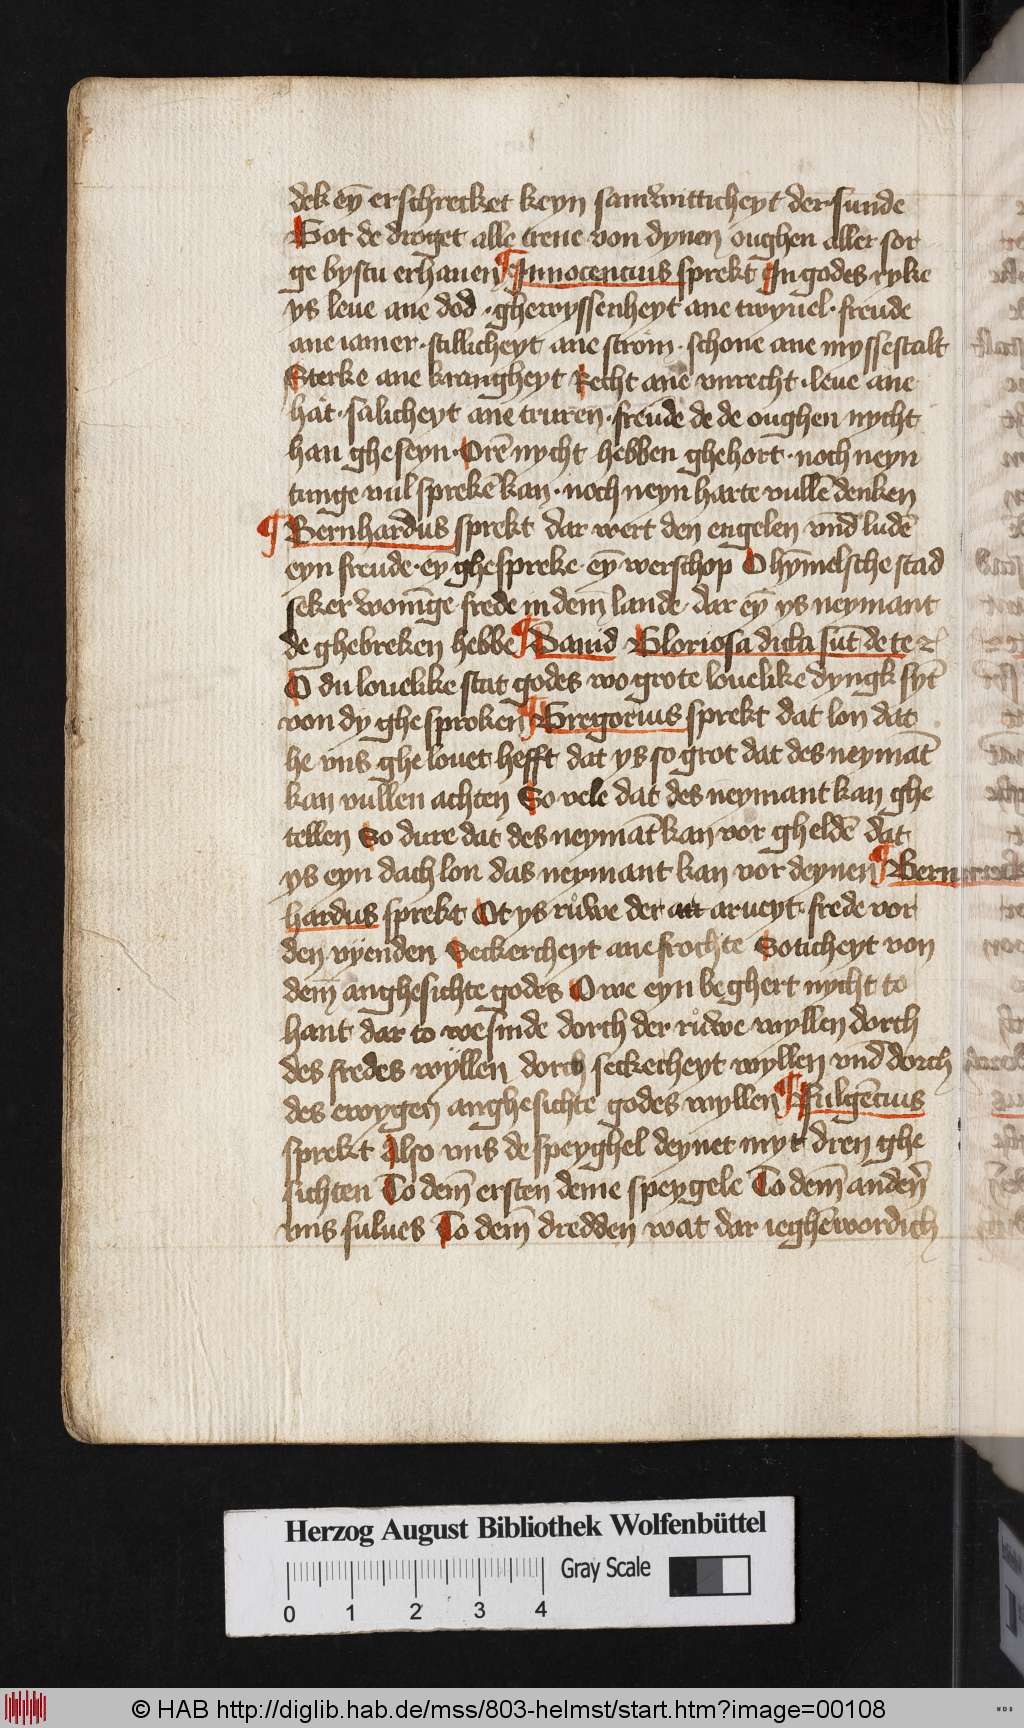 dek ey̅ erschrecket keyn samwitticheyt der sunde
Got de droget alle trene von dynen oughen aller sor
ge bystu erhauen ¶ Innocencius sprekt In godes ryke
ys leue ane dod · ghewyssenheyt ane twyuel · freude
ane iamer · stillicheyt ane strom · schone ane myssestalt
Sterke ane krangheyt Recht ane vnrecht · leue ane
hat · salicheyt ane truren · freude de de oughen nycht
han gheseyn · Ore̅ nycht hebben ghehort · noch neyn
tunge vul spreke̅ kan · noch neyn harte vulle̅ denken
¶ Bernhardus sprekt dar wert den engelen vnd lude̅
eyn freude · ey̅ ghespreke · ey̅ werschop O hy̅melsche stad
seker woni̅ge frede in dem lande · dar ey̅ ys neymant
de ghebreken hebbe ¶ Dauid Gloriosa dicta su̅t de te ⁊c
O du louelike stat godes wo grote louelike dyngk sy̅t
von dy ghesproken ¶ Gregorius sprekt dat lon dat
he vns ghelouet hefft dat ys so grot dat des neyma̅t
kan vullen achten So vele dat des neymant kan ghe
tellen So dure dat des neyma̅t kan vor ghelde̅ dat
ys eyn dach lon das neymant kan vordeynen ¶ Bern
hardus sprekt Ot ys ruwe der arueyt · frede vor
den vyenden Seckercheyt ane frochte Soticheyt von
dem anghesichte godes Owe eyn beghert nycht to
hant dar to wesinde dorch der ruwe wyllen dorch
des fredes wyllen dorch seckecheyt wyllen vnd dorch
des ewygen anghesichte godes wyllen ¶ Fulge̅cius
sprekt Also vns de speyghel deynet myt dren ghe
sichten To dem ersten deme speygele To dem anden̅
vns sulues To dem dredden wat dar ieghe̅wordich
Herzog August Bibliothek Wolfenbüttel
Gray Scale
0 1 2 3 4
© HAB http://diglib.hab.de/mss/803-helmst/start.htm?image=00108